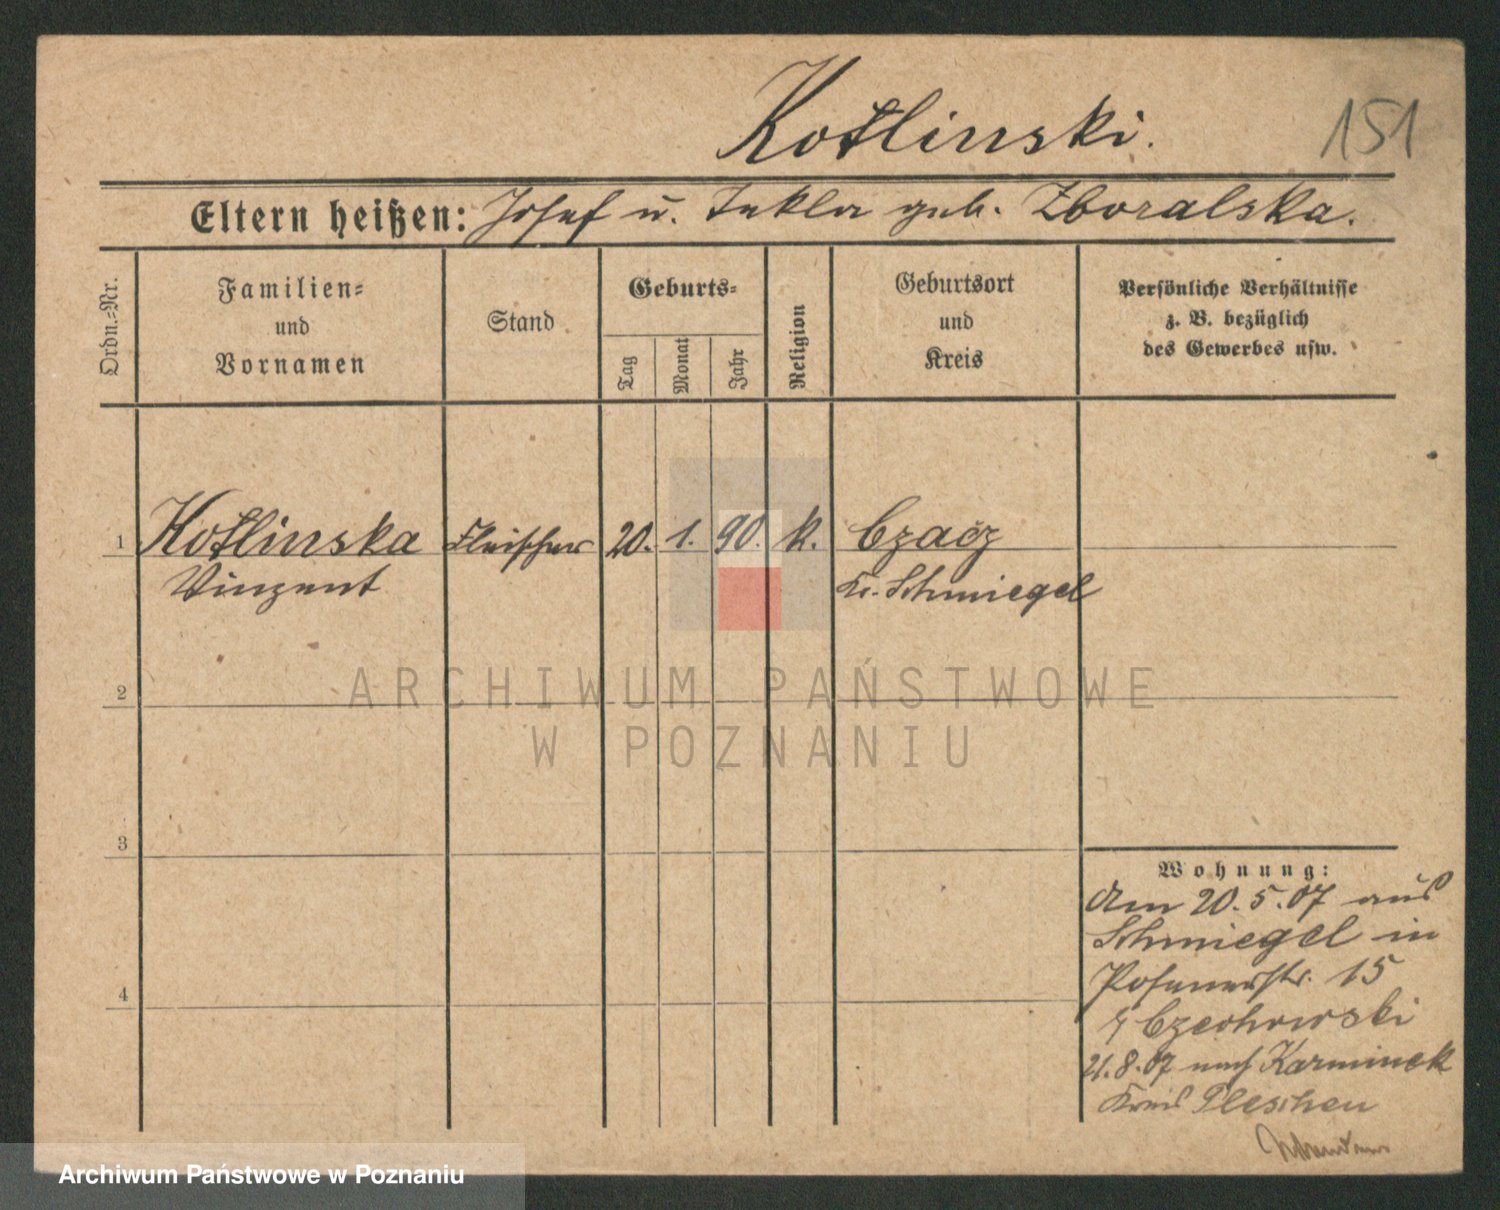 Kotlinski.
151
Eltern heißen: Josef u. Tekla geb. Zboralska.
Ordn.-Nr.
Familien-
und
Vornamen
Stand
Geburts-
Tag
Monat
Jahr
Religion
Geburtsort
und
Kreis
Persönliche Verhältnisse
z. B. bezüglich
des Gewerbes usw.
1 Kotlinska Fleischer 20. 1. 90. k. Czacz
Vinzent Kr. Schmiegel
2
3
4
Wohnung:
Am 20. 5. 07 aus
Schmiegel in
Posenerstr. 15
Czechowski
21. 8. 07 nach Karminek
Kreis Pleschen
ARCHIWUM PAŃSTWOWE
W POZNANIU
Archiwum Państwowe w Poznaniu